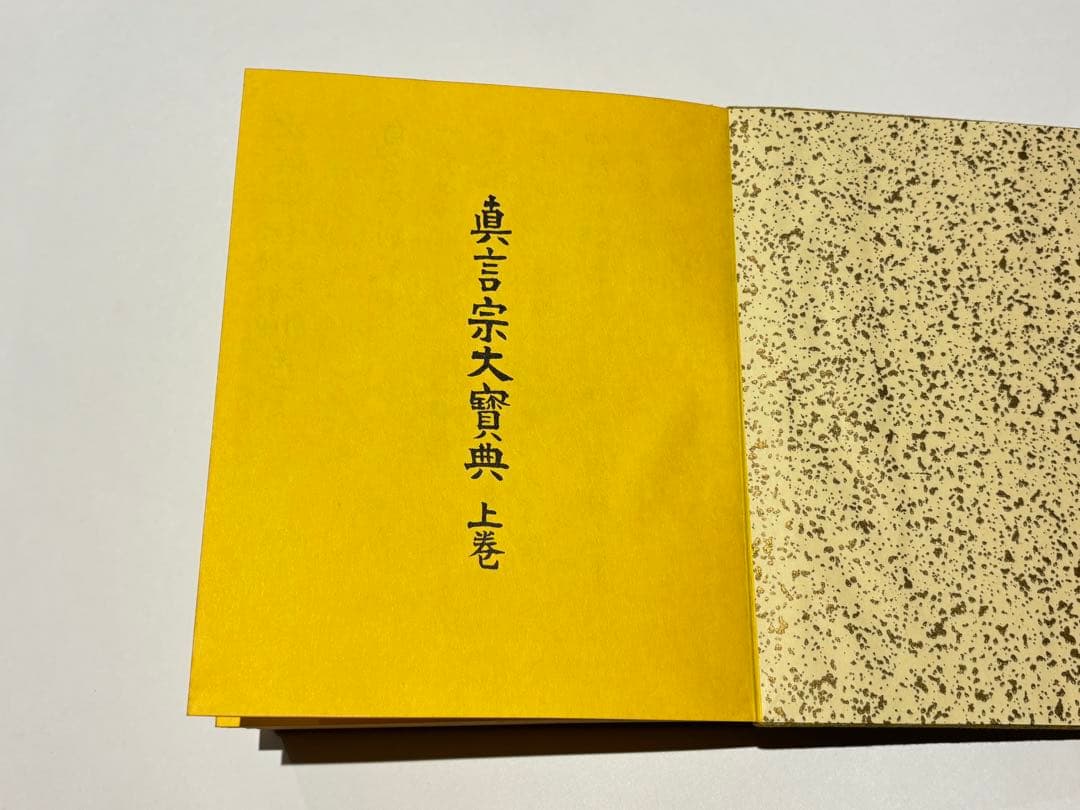 眞言宗大寶典 上巻